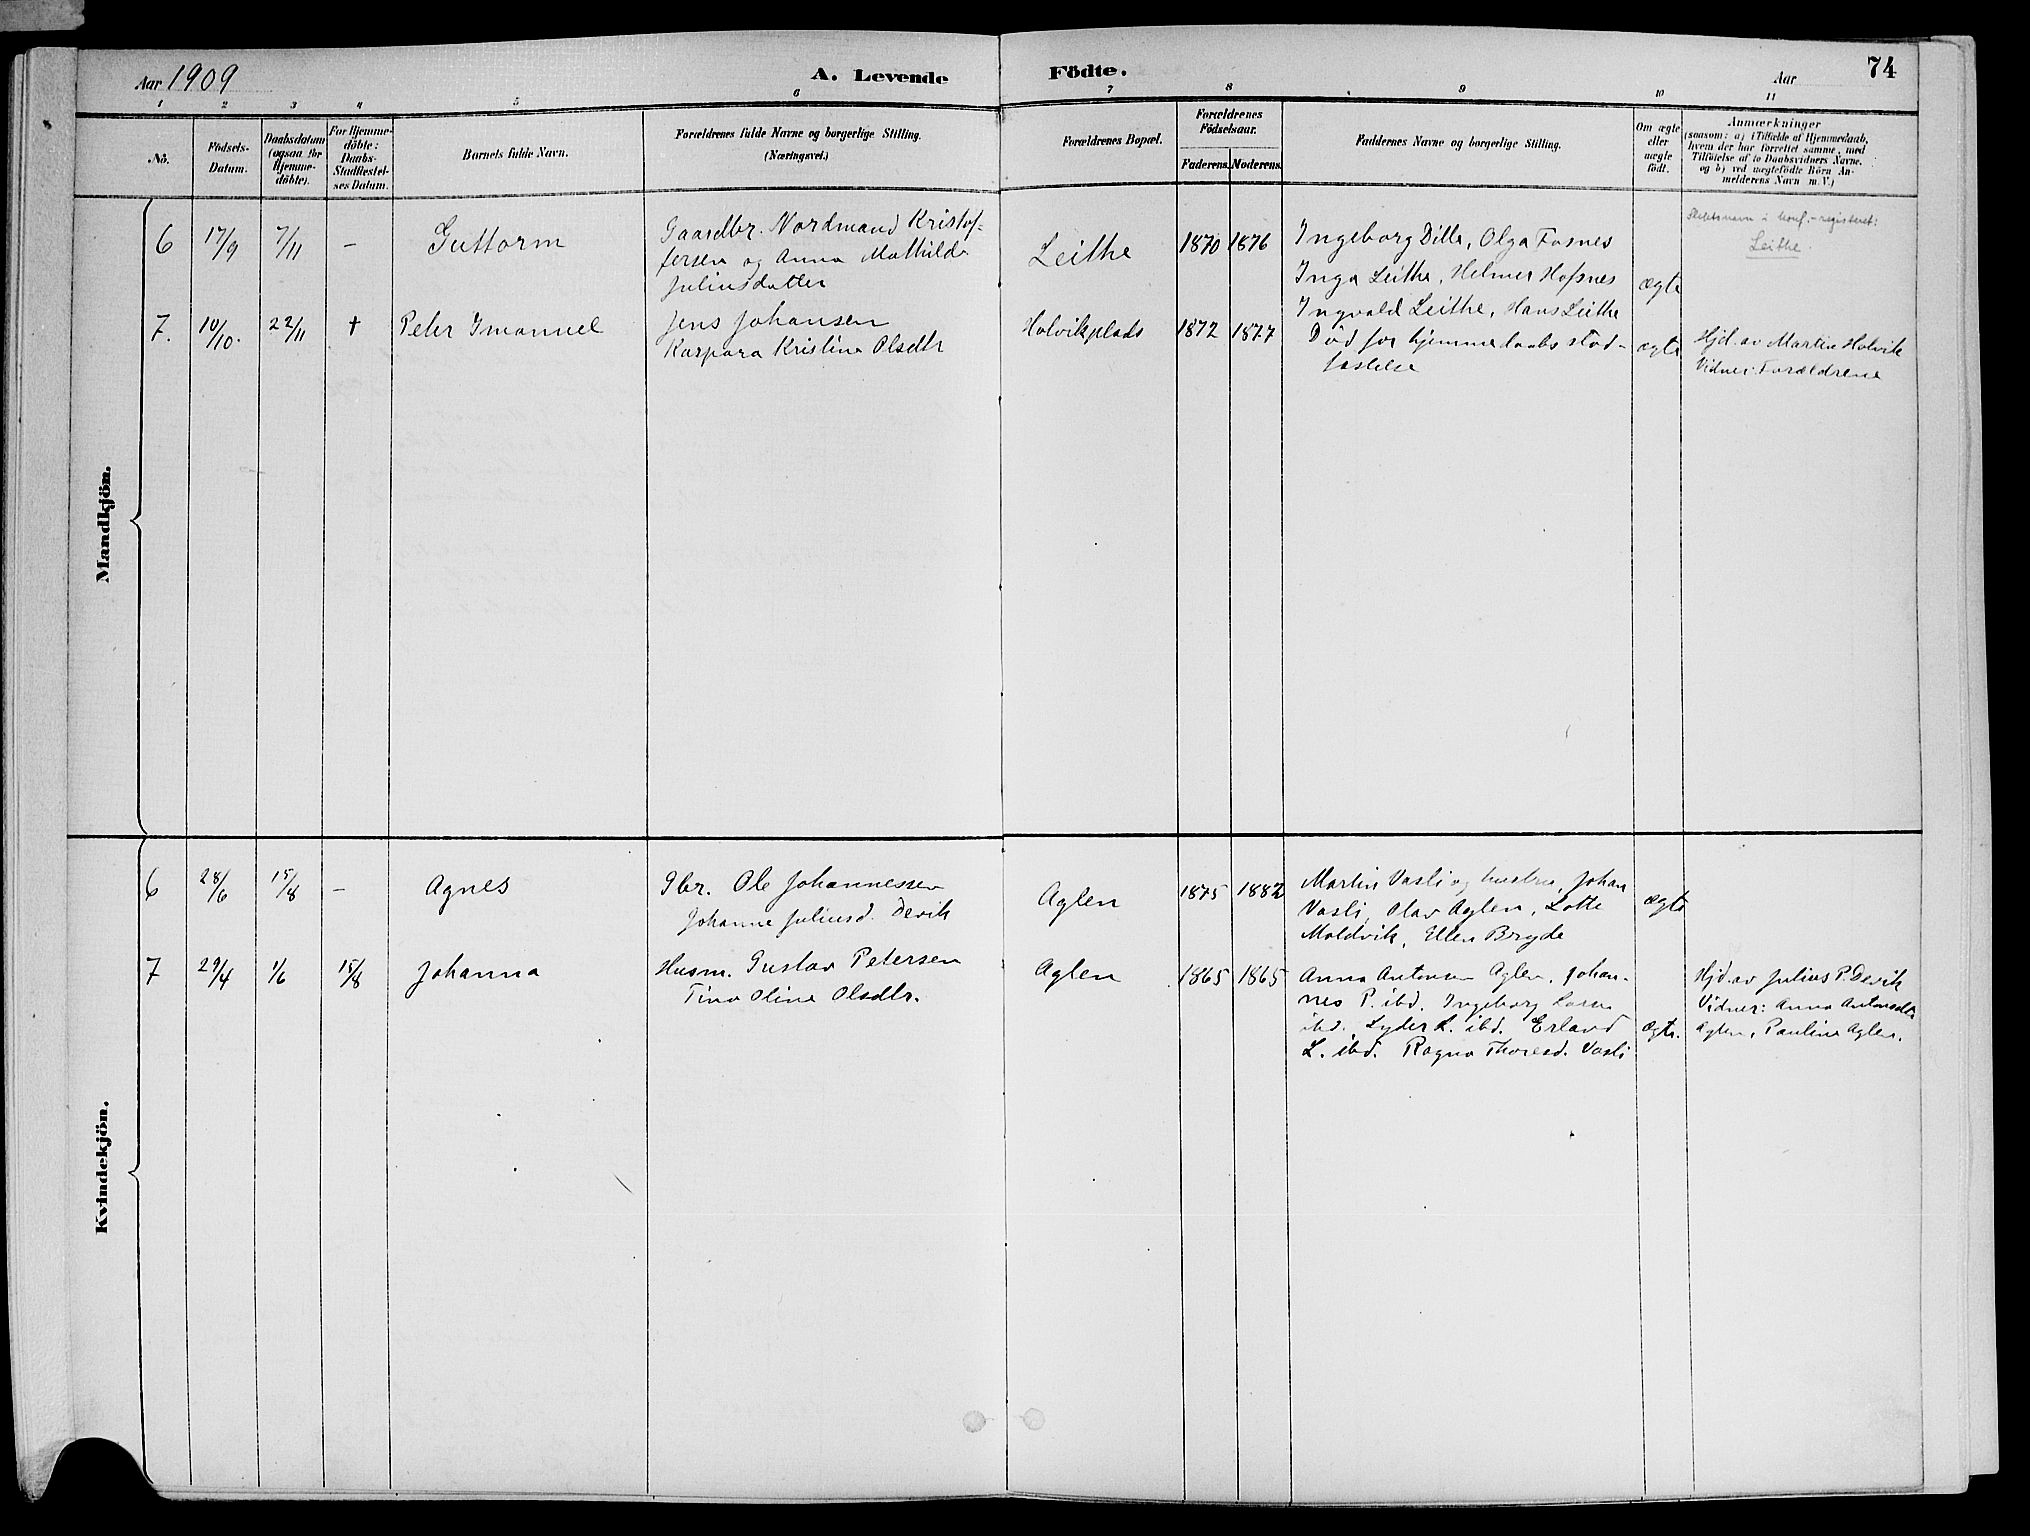 Aar 1909
A. Levende
Födte.
Aar
74
1 2 3 4 5 6 7 8 9 10 11
No.
Födsels-
Datum.
Daabsdatum
(ogsaa for
Hjemme-
döbte).
For Hjemme-
döbte:
Daabs-
Stadfæstel-
ses Datum.
Barnets fulde Navn.
Forældrenes fulde Navne og borgerlige Stilling.
(Næringsvei.)
Forældrenes Bopæl.
Forældrenes
Födselsaar.
Faderens. Moderens.
Faddernes Navne og borgerlige Stilling.
Om ægte
eller
uægte
födt.
Anmærkninger
(saasom: a) i Tilfælde af Hjemmedaab,
hvem der har forrettet samme, med
Tilföielse af to Daabsvidners Navne.
og b) ved uægtefödte Börn An-
melderens Navn m. V.)
Mandkjön.
6 17/9 7/11 - Guttorm
Gaardbr. Nordmand Kristof-
fersen og Anna Mathilde
Juliusdatter
Leithe
1870 1876
Ingeborg Dille, Olga Fosnes
Inga Leithe, Helmer Hofsnes
Ingvald Leithe, Hans Leithe
ægte
Slektsnavn i konf.-registeret:
Leithe.
7. 10/10. 22/11 † Peter Imanuel
Jens Johansen
Kaspara Kristine Olsdtr
Holvikplads
1872 1877
Död før hjemmedaabs stad-
fæstelse
ægte
Hjd. av Martin Holvik
Vidner: Forældrene
Kvindekjön.
6 28/6 15/8 - Agnes
Gbr. Ole Johannessen
Johanne Juliusd. Devik
Aglen
1875 1882
Martin Vasli og hustru, Johan
Vasli, Olav Aglen, Lotte
Moldvik, Ellen Bryde
ægte
7 29/4 1/6 15/8 Johanna
Husm. Gustav Petersen
Tina Oline Olsdtr.
Aglen
1865 1865
Anna Antonsen Aglen, Johan-
nes P. ibd. Ingeborg Larsen
ibd. Lyder L. ibd. Erland
L. ibd. Ragna Thoresd. Vasli
ægte.
Hjd. av Julius P. Devik
Vidner: Anna Antonsdtr
Aglen, Pauline Aglen.